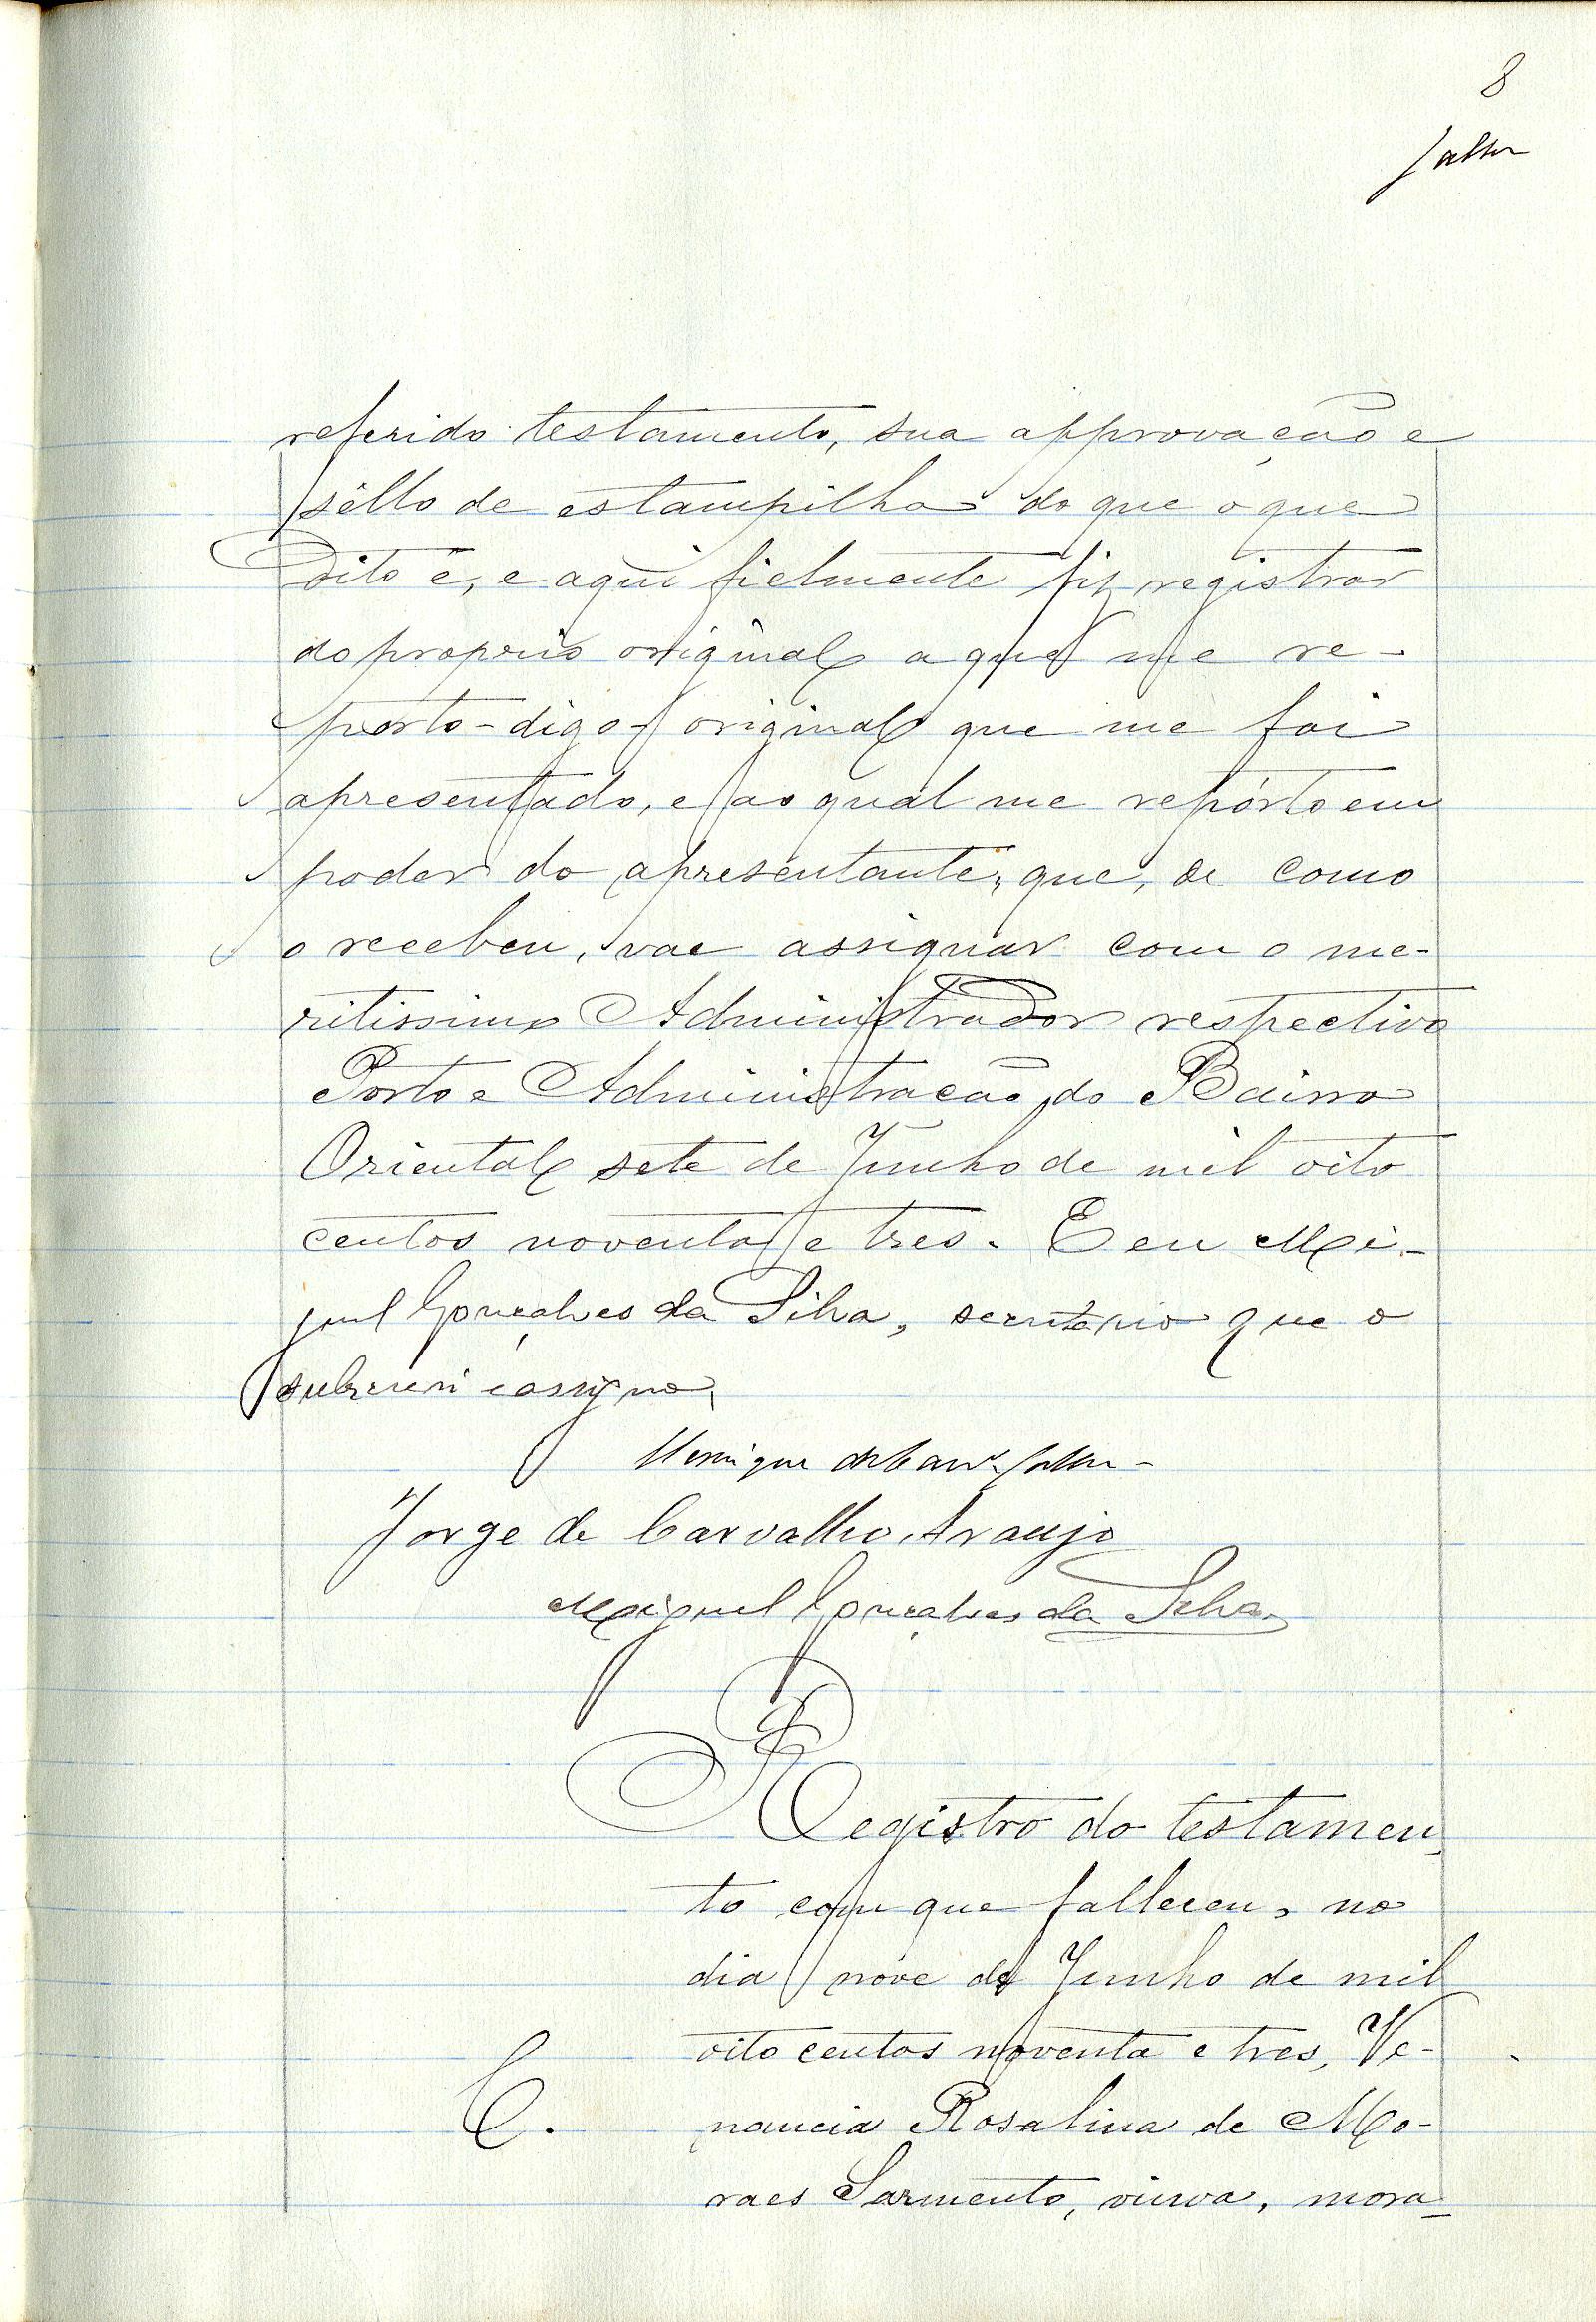 8
referido testamento, sua approvação e
sêllo de estampilha do que o que
dito é, e aqui fielmente fiz registrar
do proprio original a que me re-
porto-digo-original que me foi
apresentado, e ao qual me repórto em
poder do apresentante, que, de como
o recebeu, vae assignar com o me-
ritissimo Administrador respectivo
Porto e Administração do Bairro
Oriental sete de Junho de mil oito
centos noventa e tres. E eu Mi-
guel Gonçalves da Silva, secretario que o
subscrevi e assigno,
Henrique de Carv.º
Jorge de Carvalho Araujo
Miguel Gonçalves da Silva
Registro do testamen
to com que falleceu, no
dia nove de Junho de mil
oito centos noventa e tres, Ve-
C. nancia Rosalina de Mo-
raes Sarmento, viuva, mora